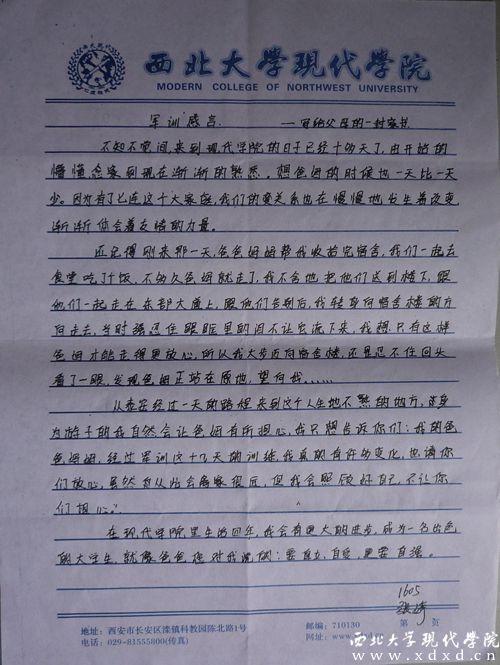 西北大学现代学院
MODERN COLLEGE OF NORTHWEST UNIVERSITY
军训感言 ——写给父母的一封家书
不知不觉间,来到现代学院的日子已经十多天了,由开始的
懵懂恋家到现在渐渐的熟悉,想爸妈的时候也一天比一天
少。因为有了七连这个大家庭,我们的关系也在慢慢地发生着改变
渐渐体会着友情的力量。
还记得刚来那一天,爸爸妈妈帮我收拾完宿舍,我们一起去
食堂吃了饭,不多久爸妈就走了,我不舍地把他们送到楼下,跟
他们一起走在东部大道上,跟他们告别后,我转身向宿舍楼的方
向走去,当时强忍住眼眶里的泪不让它流下来,我想只有这样
爸妈才能走得更放心,所以我大步迈向宿舍楼,还是忍不住回头
看了一眼,发现爸妈正站在原地,望向我......
从 经过一天的路程来到这个人生地不熟的地方,身
为游子的我自然会让爸妈有所担心,我只想告诉你们:我的爸
爸妈妈,经过军训这十几天的训练我真的有许多变化,也请你
们放心,虽然 会离家很远,但我会照顾好自己,不让你
们担心。
在现代学院里生活四年,我会有更大的进步,成为一名出色
的大学生,就像爸爸 对我说的:要自立,自爱,更要自强。
1605
地址:西安市长安区滦镇科教园陈北路1号
邮编:710130
第 页
电话:029-81555800(传真)
网址:www.
西北大学现代学院
www.xdxd.cn